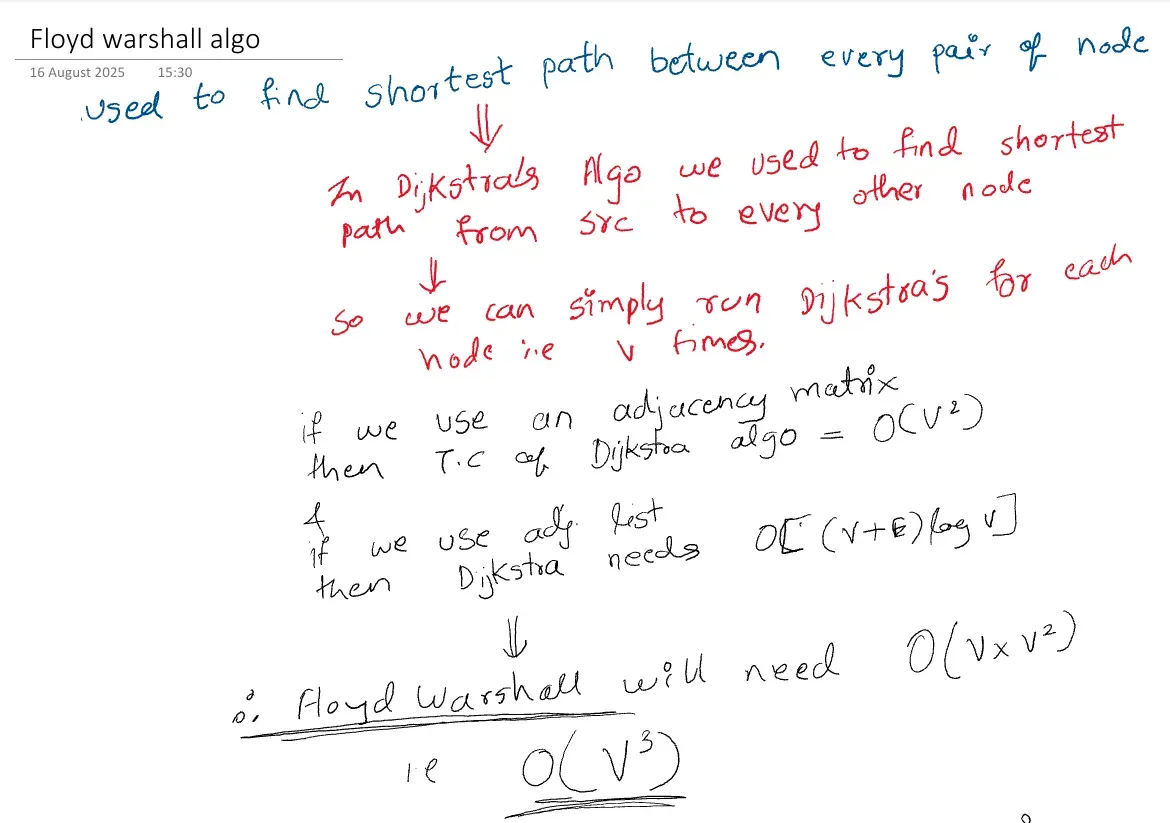 Floyd warshall algo
16 August 2025 15:30
used to find shortest path between every pair of node
⇓
In Dijkstra's Algo we used to find shortest
path from src to every other node
↓
So we can simply run Dijkstra's for each
node i.e V times.
if we use an adjacency matrix
then T.C of Dijkstra algo = O(V²)
&
if we use adj. list
then Dijkstra needs O[(V+E) log V]
⇓
∴ Floyd Warshall will need O(V×V²)
i.e O(V³)